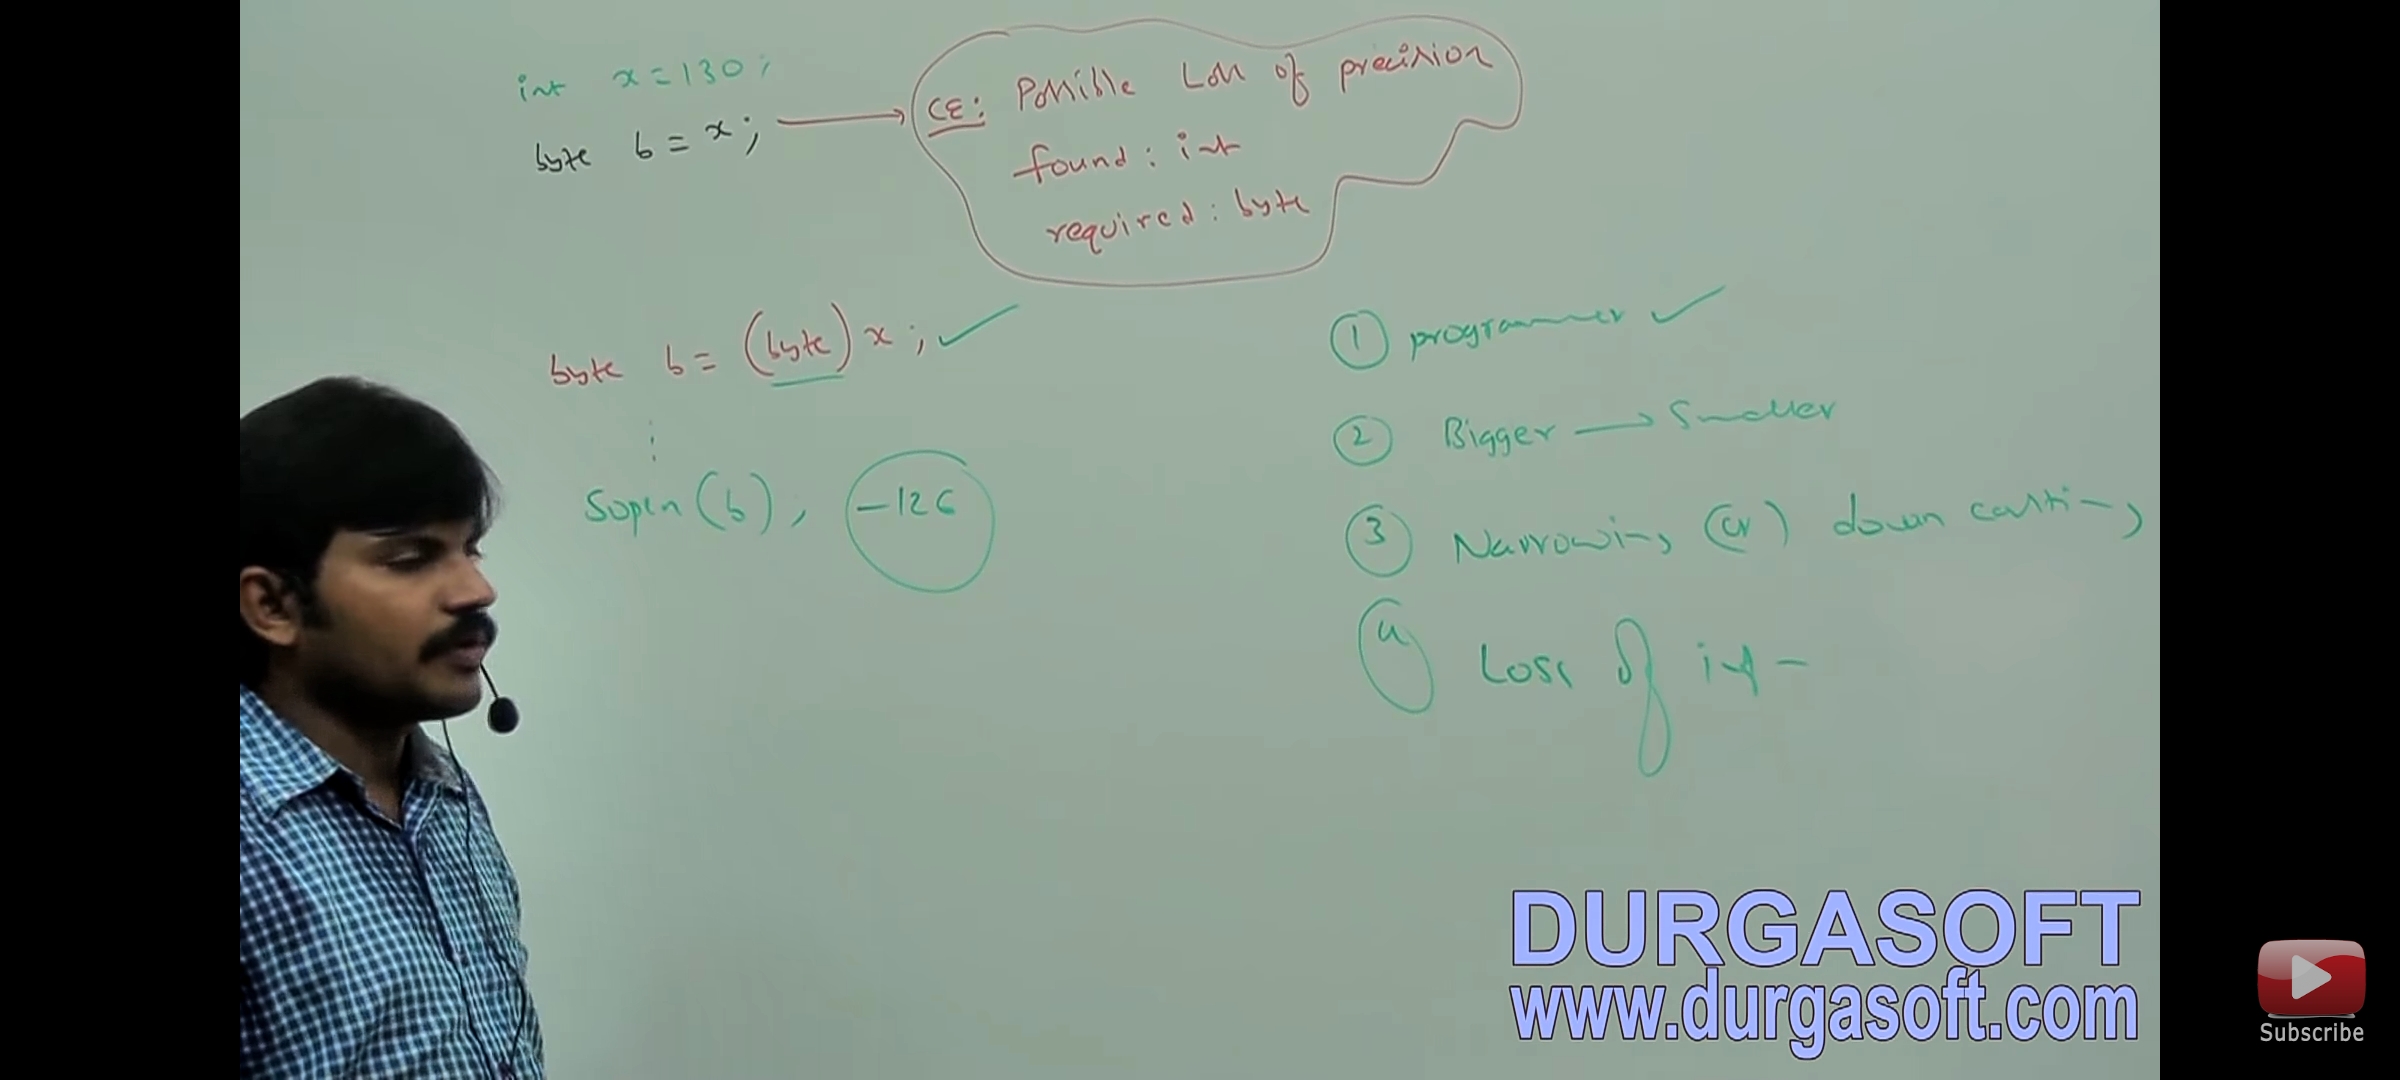 int x = 130;
byte b = x; → CE: Possible Loss of precision
found: int
required: byte
byte b = (byte) x; ✓
⋮
Sopln(b); -126
① programmer ✓
② Bigger → Smaller
③ Narrowing (or) down casting
④ Loss of inf-
DURGASOFT
www.durgasoft.com
Subscribe